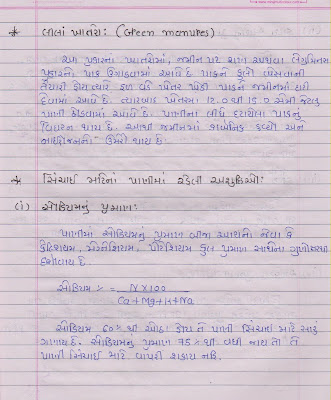 * લીલાં ખાતરો: (Green manures)
આ પ્રકારના ખાતરોમાં, જમીન પર શણ અથવા લેગ્યુમિનસ
પ્રકારનો પાક ઉગાડવામાં આવે છે. પાકને ફૂલો બેસવાની
તૈયારી હોય ત્યારે હળ વડે ખેતર ખેડી પાકને જમીનમાં દાટી
દેવામાં આવે છે. ત્યારબાદ ખેતરમાં 12.0 થી 15.0 સેમી જેટલું
પાણી છોડવામાં આવે છે. પાણીના લીધે દટાયેલા પાકનું
વિઘટન થાય છે. આથી જમીનમાં કાર્બનિક દ્રવ્યો અને
નાઇટ્રોજનનો ઉમેરો થાય છે.
* સિંચાઇ માટેનાં પાણીમાં રહેલી અશુદ્ધિઓ:
(i) સોડિયમનું પ્રમાણ:
પાણીમાં સોડિયમનું પ્રમાણ બીજા આયનો જેવા કે
કેલ્શિયમ, મેગ્નેશિયમ, પોટેશિયમ કુલ પ્રમાણ સાથેના ગુણોત્તરમાં
દર્શાવાય છે.
સોડિયમ % = N×100
Ca+Mg+K+Na
સોડિયમ 60% થી ઓછા હોય તે પાણી સિંચાઇ માટે સારું
ગણાય છે. સોડિયમનું પ્રમાણ 75% થી વધી જાય તો તે
પાણી સિંચાઇ માટે વાપરી શકાય નહિ.